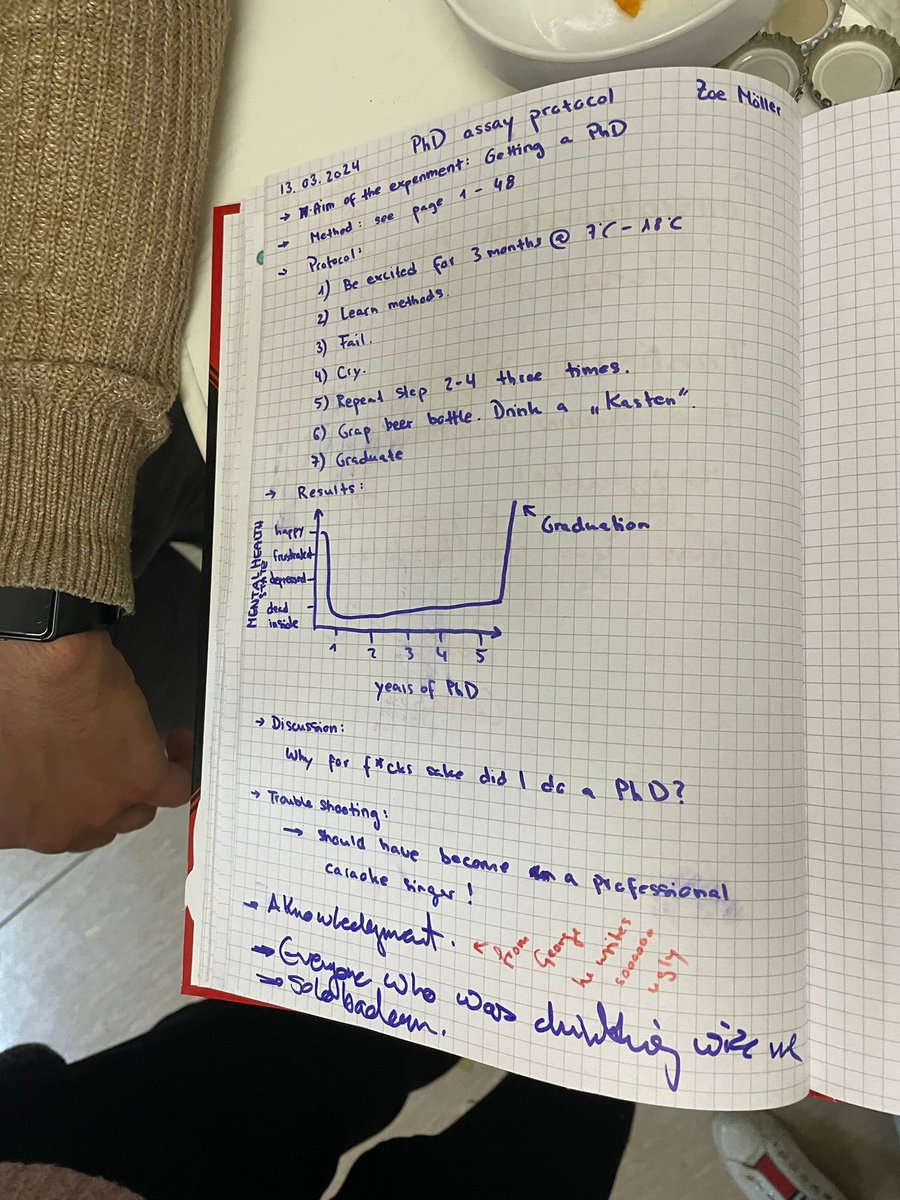 Zoe Möller
PhD assay protocol
13.03.2024
→ Aim of the expenment: Getting a PhD
→ Method: see page 1 - 48
→ Protocol:
1) Be excited for 3 months @ 7°C - 18°C
2) Learn methods.
3) Fail.
4) Cry.
5) Repeat step 2-4 three times.
6) Grap beer bottle. Drink a „Kasten“.
7) Graduate
→ Results:
MENTAL HEALTH
STATE
happy
frustrated
depressed
dead
inside
Graduation
1 2 3 4 5
years of PhD
→ Discussion:
Why for f*cks sake did I do a PhD?
→ Trouble shooting:
→ should have become a professional
caraoke singer!
→ Aknowledgment.
← from George he writes soooooo ugly
→ Everyone who was drinking with me
→ Solebadem.